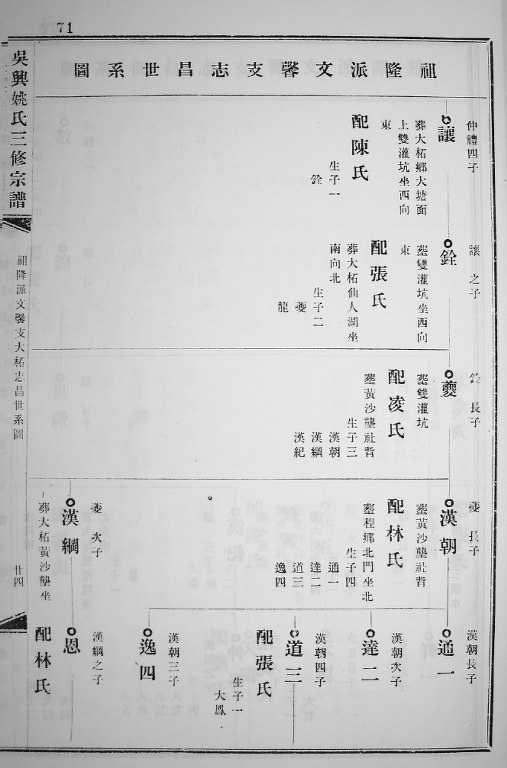 71
吳興姚氏三修宗譜
祖隆派文馨支大柘志昌世系圖
廿四
祖隆派文馨支志昌世系圖
仲禮四子
讓
葬大柘鄉大塘面
上雙灌坑坐西向
東
配陳氏
生子一
銓
讓之子
銓
塟雙灌坑坐西向
東
配張氏
葬大柘仙人湖坐
南向北
生子二
夔
龍
銓長子
夔
塟雙灌坑
配凌氏
塟黃沙壟社背
生子三
漢朝
漢綱
漢紀
夔長子
漢朝
塟黃沙壟社背
配林氏
塟程鄉北門坐北
生子四
通一
達二
道三
逸四
夔次子
漢綱
葬大柘黃沙壟坐
漢朝長子
通一
漢朝次子
達二
漢朝四子
道三
配張氏
生子一
大鳳
漢朝三子
逸四
漢綱之子
恩
配林氏